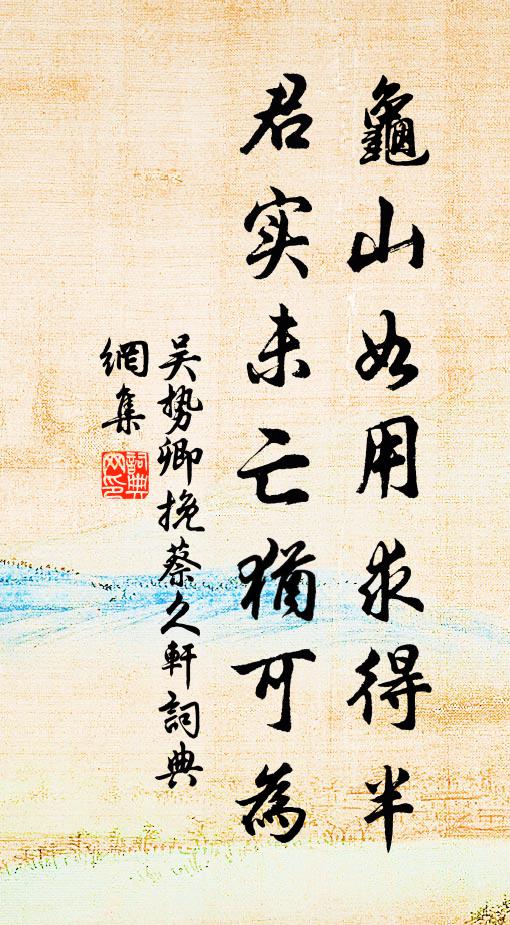 龜山如用求得半
君实未亡猶可為
吴势卿挽蔡久軒詞典
網集
詞典
网印